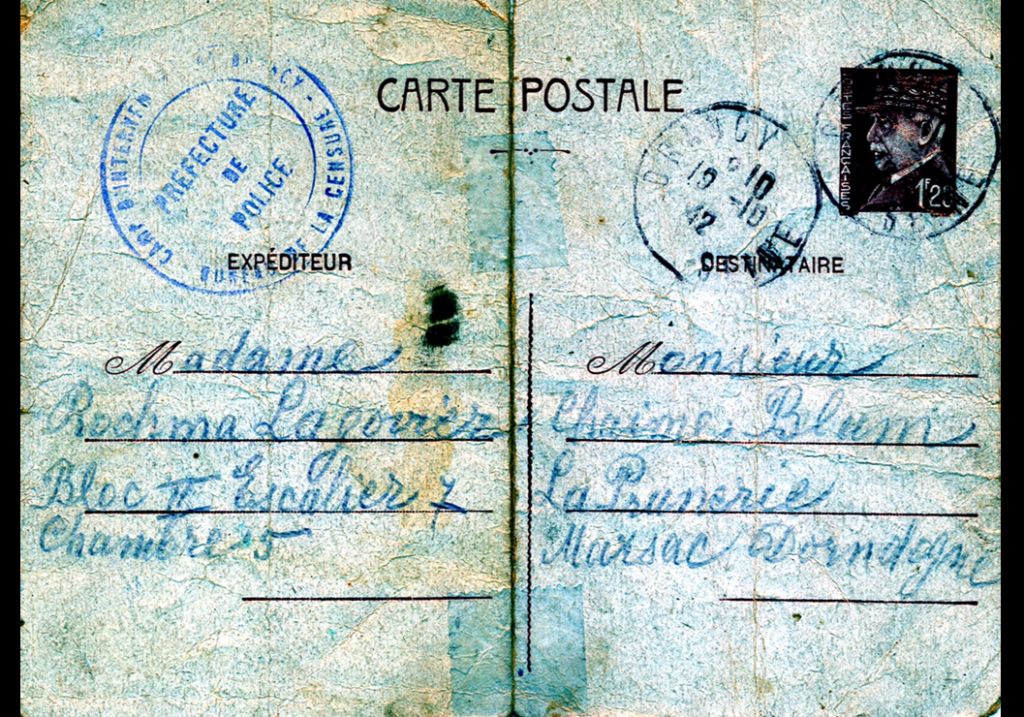 CARTE POSTALE
CAMP D'INTERNEMENT DE DRANCY - BUREAU DE LA CENSURE -
PRÉFECTURE
DE
POLICE
DRANCY
10
10 -10
42
SEINE
POSTES FRANÇAISES
1F20
EXPÉDITEUR
Madame
Rochma Lagoviez
Bloc II Escalier 7
Chambre 5
DESTINATAIRE
Monsieur
Chaime Blum
La Prunerie
Marsac Dorndogne